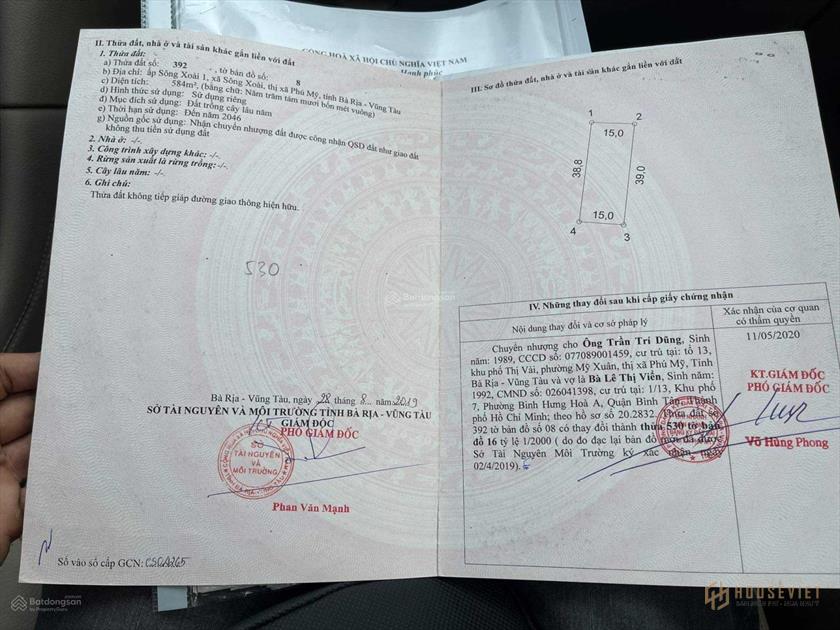 CỘNG HOÀ XÃ HỘI CHỦ NGHĨA VIỆT NAM
Hạnh phúc
II. Thửa đất, nhà ở và tài sản khác gắn liền với đất
1. Thửa đất:
a) Thửa đất số: 392 , tờ bản đồ số: 8
b) Địa chỉ: ấp Sông Xoài 1, xã Sông Xoài, thị xã Phú Mỹ, tỉnh Bà Rịa - Vũng Tàu
c) Diện tích: 584m², (bằng chữ: Năm trăm tám mươi bốn mét vuông)
d) Hình thức sử dụng: Sử dụng riêng
đ) Mục đích sử dụng: Đất trồng cây lâu năm
e) Thời hạn sử dụng: Đến năm 2046
g) Nguồn gốc sử dụng: Nhận chuyển nhượng đất được công nhận QSD đất như giao đất
không thu tiền sử dụng đất
2. Nhà ở: -/-
3. Công trình xây dựng khác: -/-
4. Rừng sản xuất là rừng trồng: -/-
5. Cây lâu năm: -/-
6. Ghi chú:
Thửa đất không tiếp giáp đường giao thông hiện hữu.
530
Bà Rịa - Vũng Tàu, ngày 28 tháng 8 năm 2019
SỞ TÀI NGUYÊN VÀ MÔI TRƯỜNG TỈNH BÀ RỊA - VŨNG TÀU
GIÁM ĐỐC
PHÓ GIÁM ĐỐC
SỞ
TÀI NGUYÊN
VÀ
MÔI TRƯỜNG
Phan Văn Mạnh
Số vào sổ cấp GCN:
III. Sơ đồ thửa đất, nhà ở và tài sản khác gắn liền với đất
1
2
15,0
38,8
39,0
15,0
4
3
IV. Những thay đổi sau khi cấp giấy chứng nhận
Nội dung thay đổi và cơ sở pháp lý
Xác nhận của cơ quan
có thẩm quyền
Chuyển nhượng cho Ông Trần Trí Dũng, Sinh
năm: 1989, CCCD số: 077089001459, cư trú tại: tổ 13,
khu phố Thị Vải, phường Mỹ Xuân, thị xã Phú Mỹ, Tỉnh
Bà Rịa - Vũng Tàu và vợ là Bà Lê Thị Viễn, Sinh năm:
1992, CMND số: 026041398, cư trú tại: 1/13, Khu phố
7, Phường Bình Hưng Hoà A, Quận Bình Tân, Thành
phố Hồ Chí Minh; theo hồ sơ số 20.2832. Thửa đất số
392 tờ bản đồ số 08 có thay đổi thành thửa 530 tờ bản
đồ 16 tỷ lệ 1/2000 ( do đo đạc lại bản đồ mới đã được
Sở Tài Nguyên Môi Trường ký xác nhận ngày
02/4/2019).
11/05/2020
KT.GIÁM ĐỐC
PHÓ GIÁM ĐỐC
Võ Hùng Phong
Batdongsan
Batdongsan
by PropertyGuru
HOUSEVIET